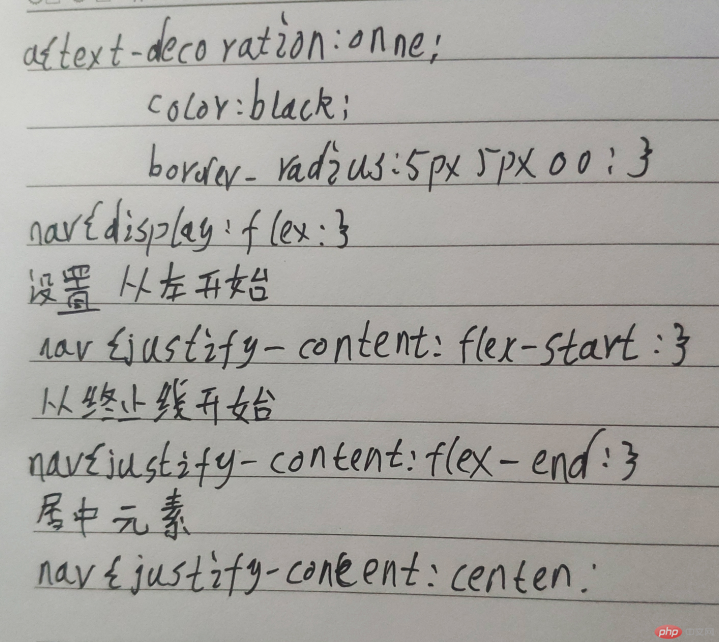 a{text-decoration:onne;
color:black;
border-radius:5px 5px 0 0;}
nav{display:flex:}
设置 从左开始
nav{justify-content:flex-start:}
从终止线开始
nav{justify-content:flex-end:}
居中元素
nav{justify-conteent:centen:
php